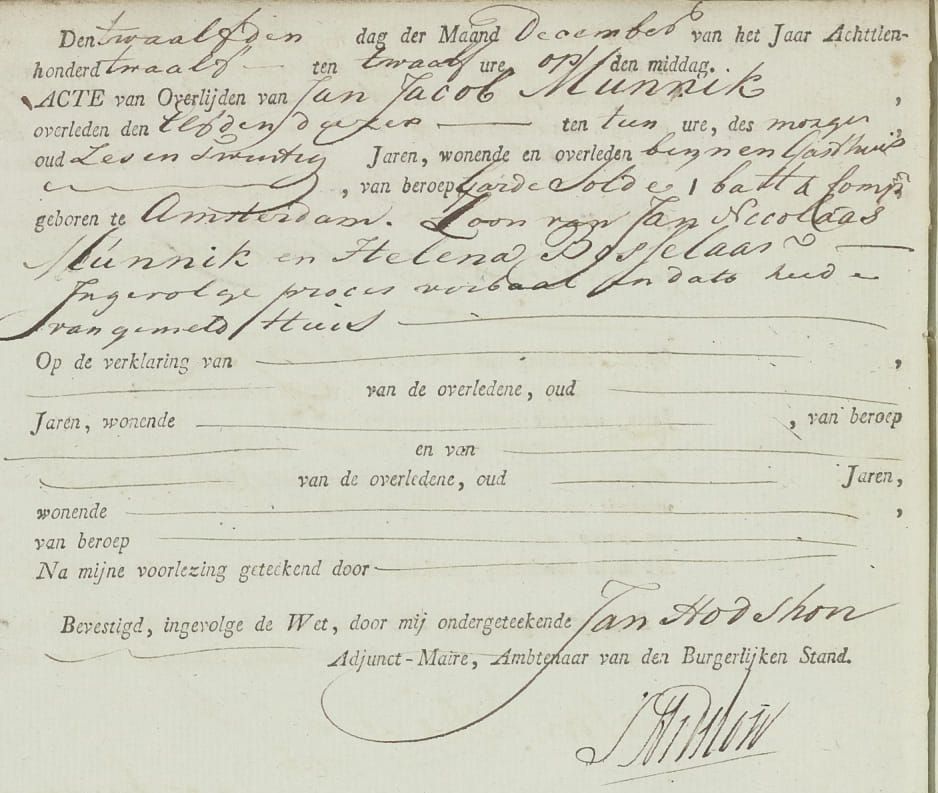 Den twaalfden dag der Maand December van het Jaar Achttien-
honderd twaalf ten twaalf ure op den middag.
ACTE van Overlijden van Jan Jacob Munnik,
overleden den Elfden dezer ten tien ure, des morgens,
oud Zes en Twintig Jaren, wonende en overleden binnen Gasthuis
, van beroep Garde Soldé 1 batt 4 Comp
geboren te Amsterdam. Zoon van Jan Nicolaas
Munnik en Helena Posselaar
Ingevolge proces verbaal in dato heede
van gemeld Huis
Op de verklaring van ,
van de overledene, oud
Jaren, wonende , van beroep
en van
van de overledene, oud Jaren,
wonende ,
van beroep
Na mijne voorlezing geteekend door
Bevestigd, ingevolge de Wet, door mij ondergeteekende Jan Hodshon
Adjunct-Maire, Ambtenaar van den Burgerlijken Stand.
J Hodshon